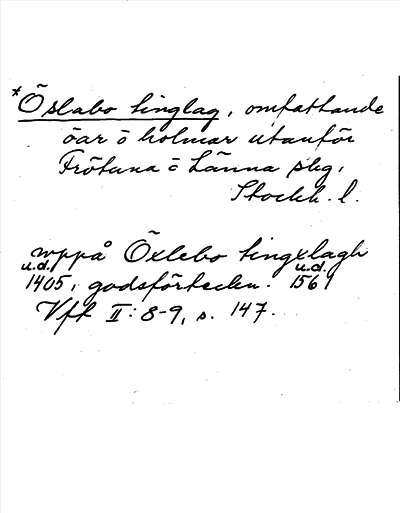 *Öslabo tinglag, omfattande
öar o holmar utanför
Frötuna o Länna skg,
Stockh. l.
uppå Öxlebo tingxlagh
u.d. u.d.
1405, godsförteckn. 1561
Vff II: 8-9, s. 147.